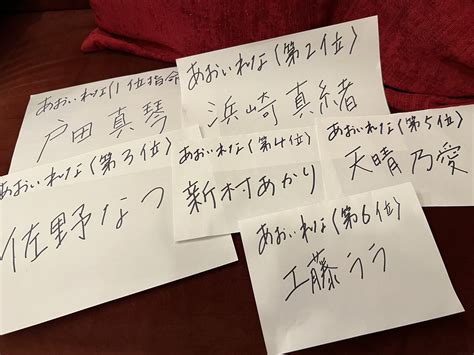 あおいれな(1位指命
戸田真琴
あおいれな(第2位)
浜崎真緒
あおいれな(第3位)
佐野なつ
あおいれな(第4位)
新村あかり
あおいれな(第5位)
天晴乃愛
あおいれな(第6位)
工藤ララ